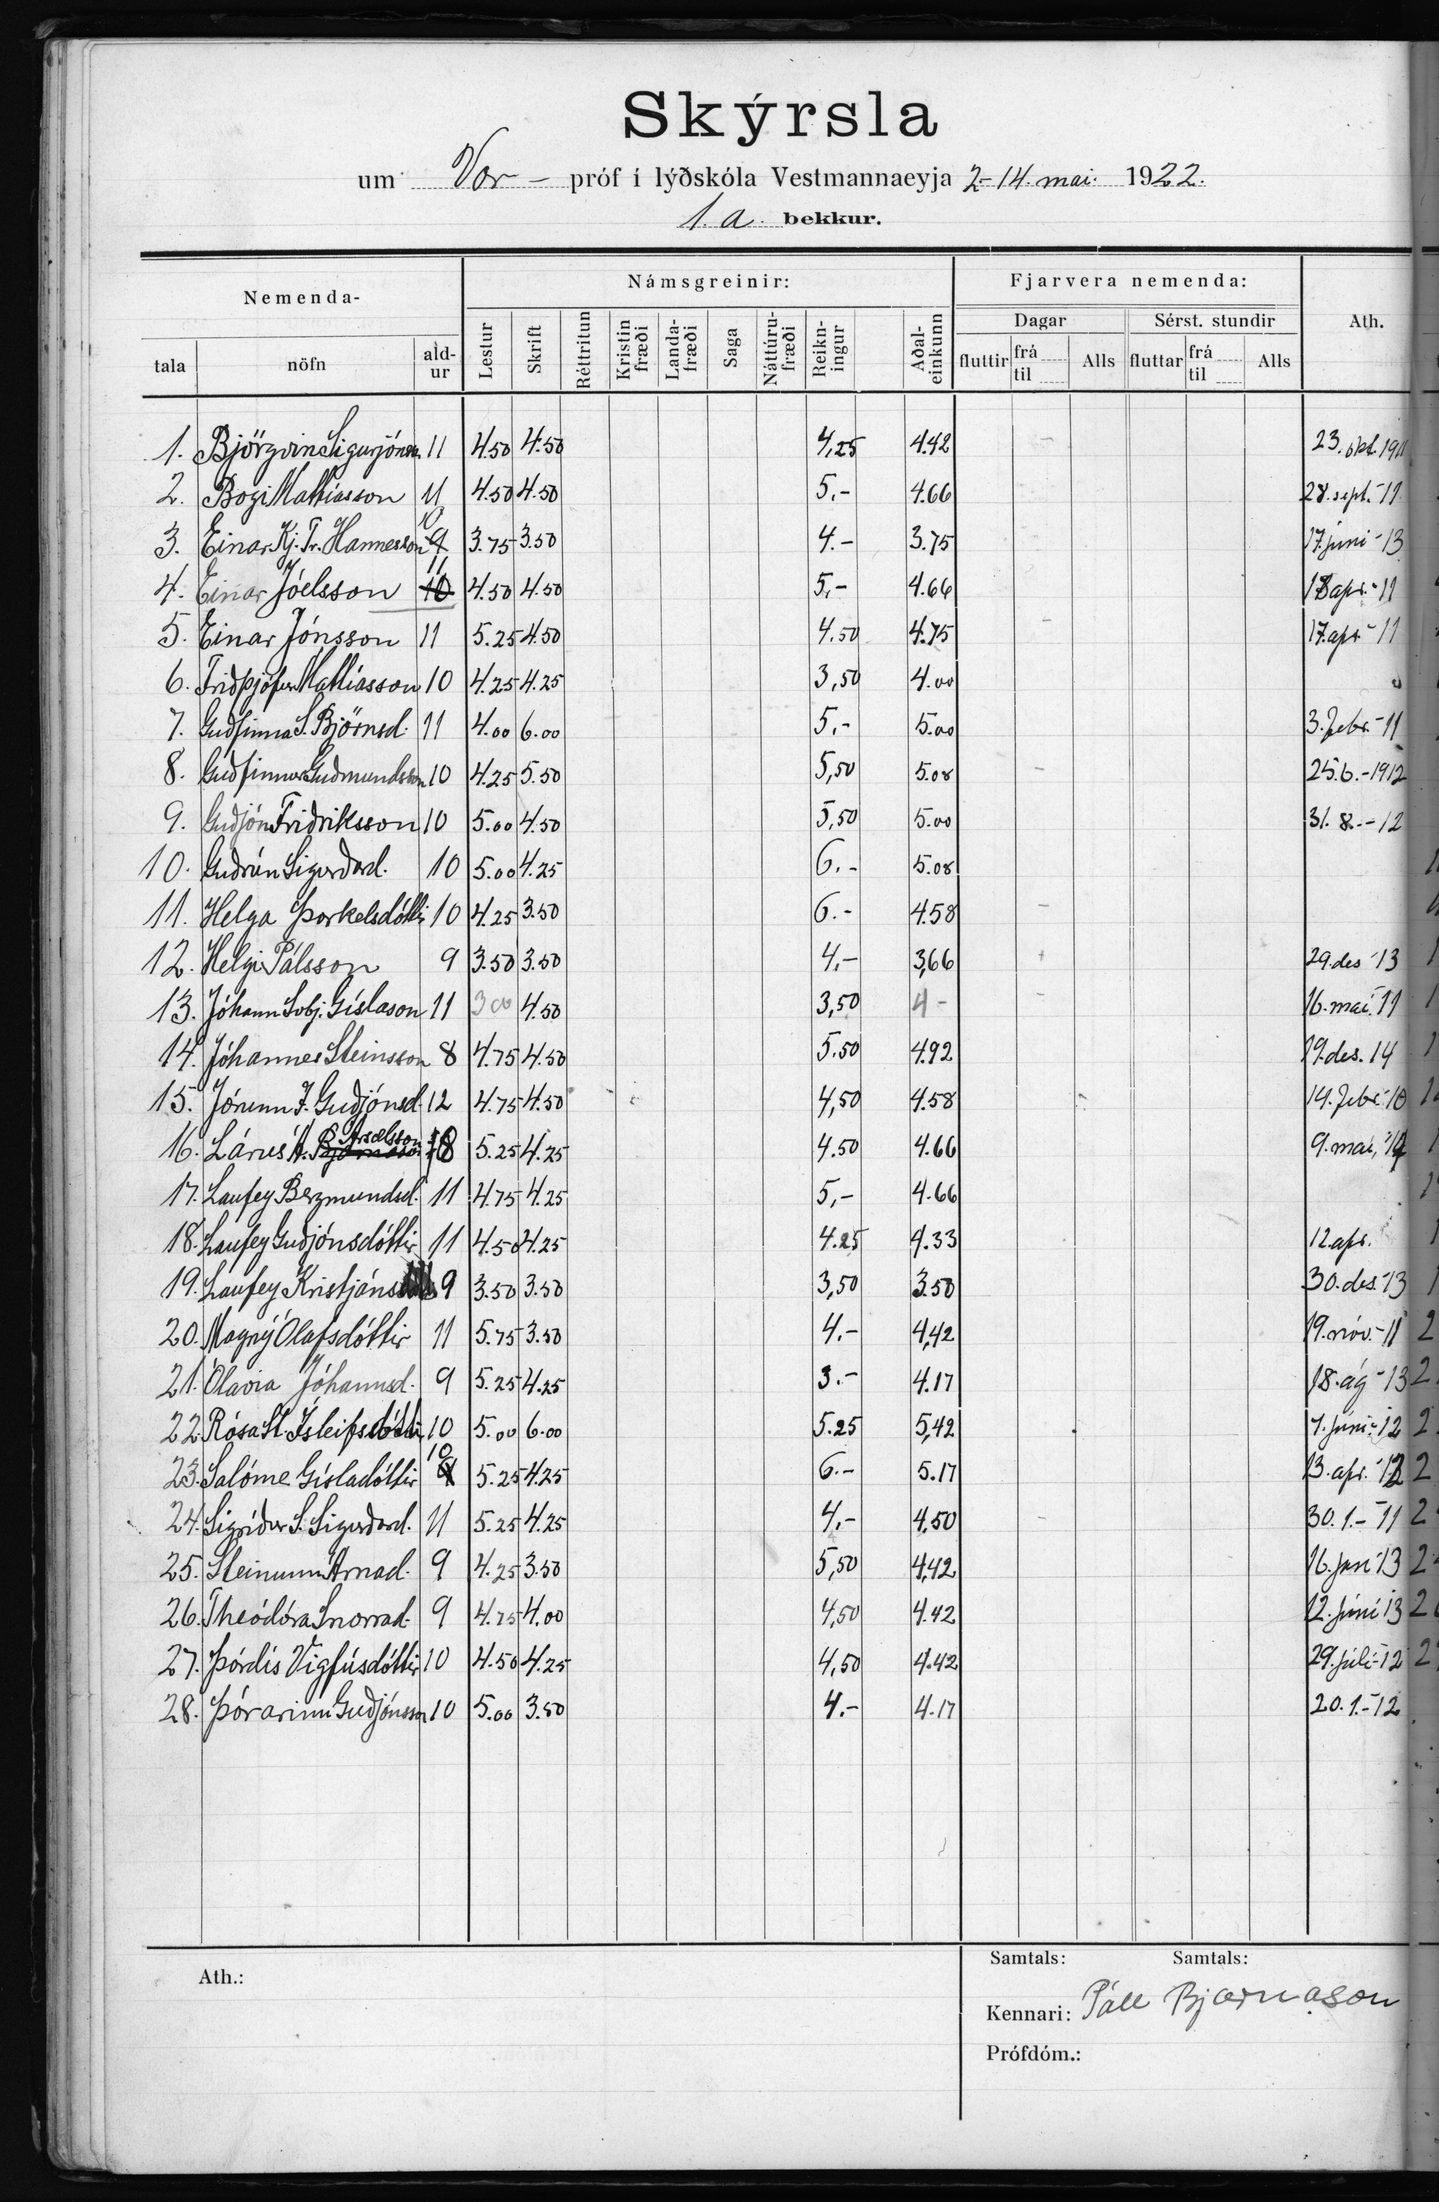 Skýrsla
um Vor - próf í lýðskóla Vestmannaeyja 2.-14. mai. 1922.
1. a. bekkur.
Nemenda- Námsgreinir: Fjarvera nemenda: Ath.
Dagar Sérst. stundir
tala nöfn ald-ur Lestur Skrift Réttritun Kristin fræði Landa-fræði Saga Náttúru-fræði Reikn-ingur Aðal-einkunn fluttir frá til Alls fluttar frá til Alls
1. Björgvin Sigurjónss. 11 4.50 4.50 4,25 4.42 23. okt. 1911
2. Bogi Matthíasson 11 4.50 4.50 5.- 4.66 28. sept. - 11
3. Einar Kj. Tr. Hannesson 9 10 3.75 3.50 4.- 3.75 17. júni - 13
4. Einar Jóelsson 10 11 4.50 4.50 5.- 4.66 18 apr. - 11
5. Einar Jónsson 11 5.25 4.50 4.50 4.75 17. apr - 11
6. Friðþjófur Matthíasson 10 4.25 4.25 3,50 4.00
7. Guðfinna S. Björnsd. 11 4.00 6.00 5.- 5.00 3. febr. - 11
8. Guðfinnur Guðmundsson 10 4.25 5.50 5,50 5.08 25. 6. - 1912
9. Guðjón Friðriksson 10 5.00 4.50 5,50 5.00 31. 8. - 12
10. Guðrún Sigurðard. 10 5.00 4.25 6.- 5.08
11. Helga Þorkelsdóttir 10 4.25 3.50 6.- 4.58
12. Helgi Pálsson 9 3.50 3.50 4,- 3,66 29. des - 13
13. Jóhann Svbj. Gíslason 11 3 00 4.50 3,50 4 - 16. maí - 11
14. Jóhannes Steinsson 8 4.75 4.50 5.50 4.92 19. des. 14
15. Jórunn I. Guðjónsd. 12 4.75 4.50 4,50 4.58 14. febr. - 10
16. Lárus A. Bjarnason Ársælsson 8 5.25 4.25 4.50 4.66 9. mai, '14
17. Laufey Bergmundsd. 11 4.75 4.25 5,- 4.66
18. Laufey Guðjónsdóttir 11 4.50 4.25 4.25 4.33 12. apr.
19. Laufey Kristjáns 9 3.50 3.50 3,50 3.50 30. des. - 13
20. Magný Ólafsdóttir 11 5.75 3.50 4.- 4,42 19. nóv. - 11
21. Ólavía Jóhannsd. 9 5.25 4.25 3.- 4.17 18. ág - 13
22. Rósa St. Ísleifsdóttir 10 5.00 6.00 5.25 5,42 7. júni - 12
23. Salóme Gísladóttir 10 5.25 4.25 6.- 5.17 13. apr. - 12
24. Sigríður S. Sigurðard. 11 5.25 4.25 4,- 4,50 30. 1. - 11
25. Steinunn Árnad. 9 4.25 3.50 5,50 4,42 16. jan - 13
26. Theódóra Snorrad. 9 4.75 4.00 4,50 4.42 12. júni 13
27. Þórdís Vigfúsdóttir 10 4.50 4.25 4,50 4.42 29. júlí - 12
28. Þórarinn Guðjónsson 10 5.00 3.50 4.- 4.17 20. 1. - 12
Samtals: Samtals:
Ath.:
Kennari: Páll Bjarnason
Prófdóm.: